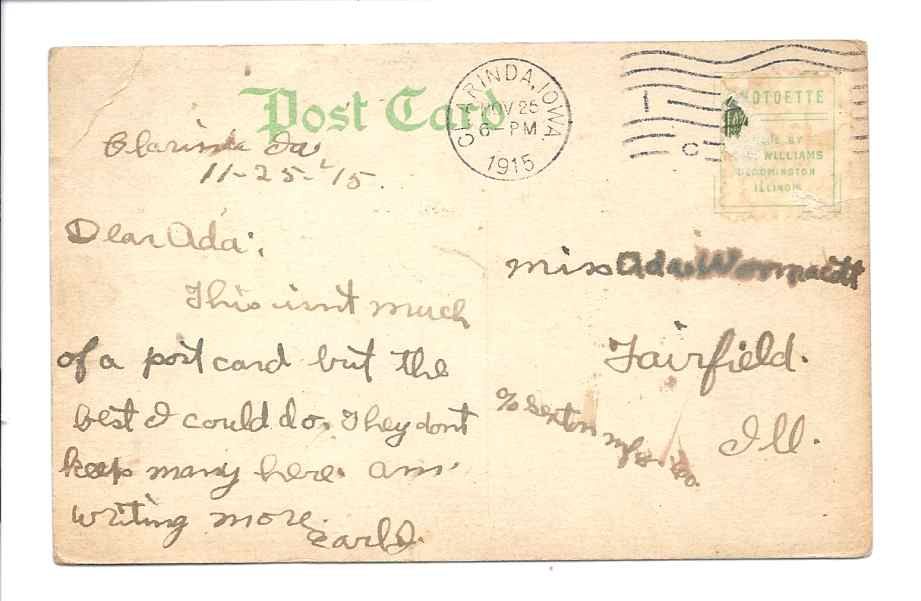 Post Card
CLARINDA, IOWA.
NOV 25
6-PM
1915
OTOETTE
BY
WILLIAMS
BLOOMINGTON
ILLINOIS
Clarinda Ia
11-25-'15.
Dear Ada:
This isn't much
of a post card but the
best I could do. They dont
keep many here. am
writing more.
Earl D.
Miss Ada
Fairfield.
Ill.
c/o Sexton mfg. Co.